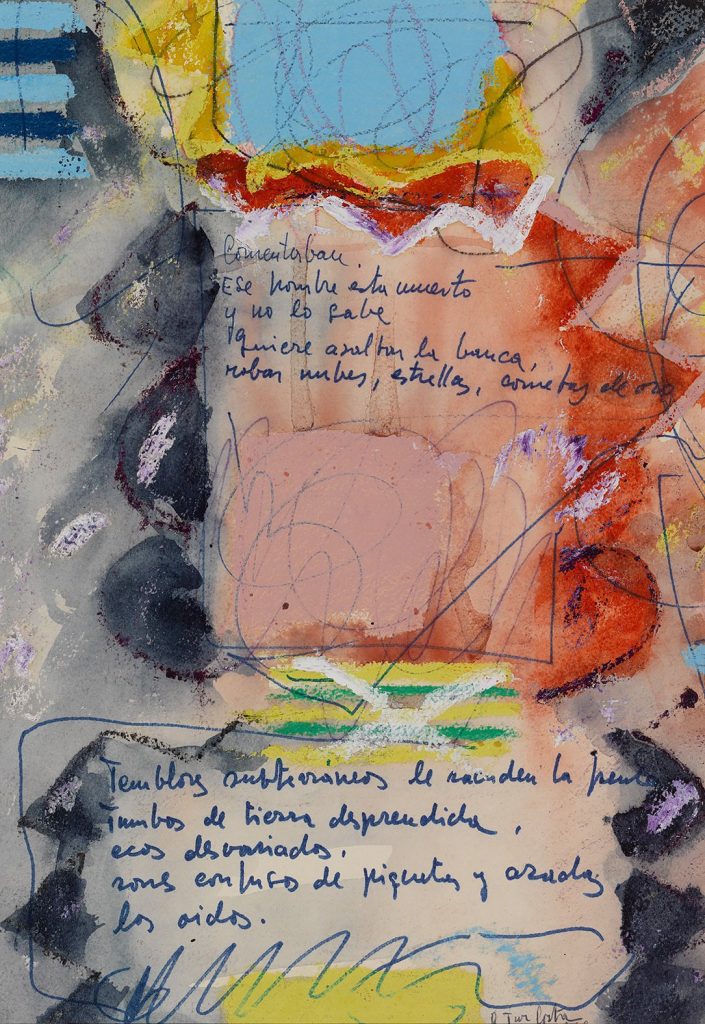 Ese hombre esta muerto
y no lo sabe
Quiere asaltar la banca,
robar nubes, estrellas, cometas de oro
Temblores subterráneos le sacuden la frente
Tumbos de tierra desprendida,
ecos desvariados,
sones confusos de piquetas y azadas,
los oidos.
R. Tur Costa